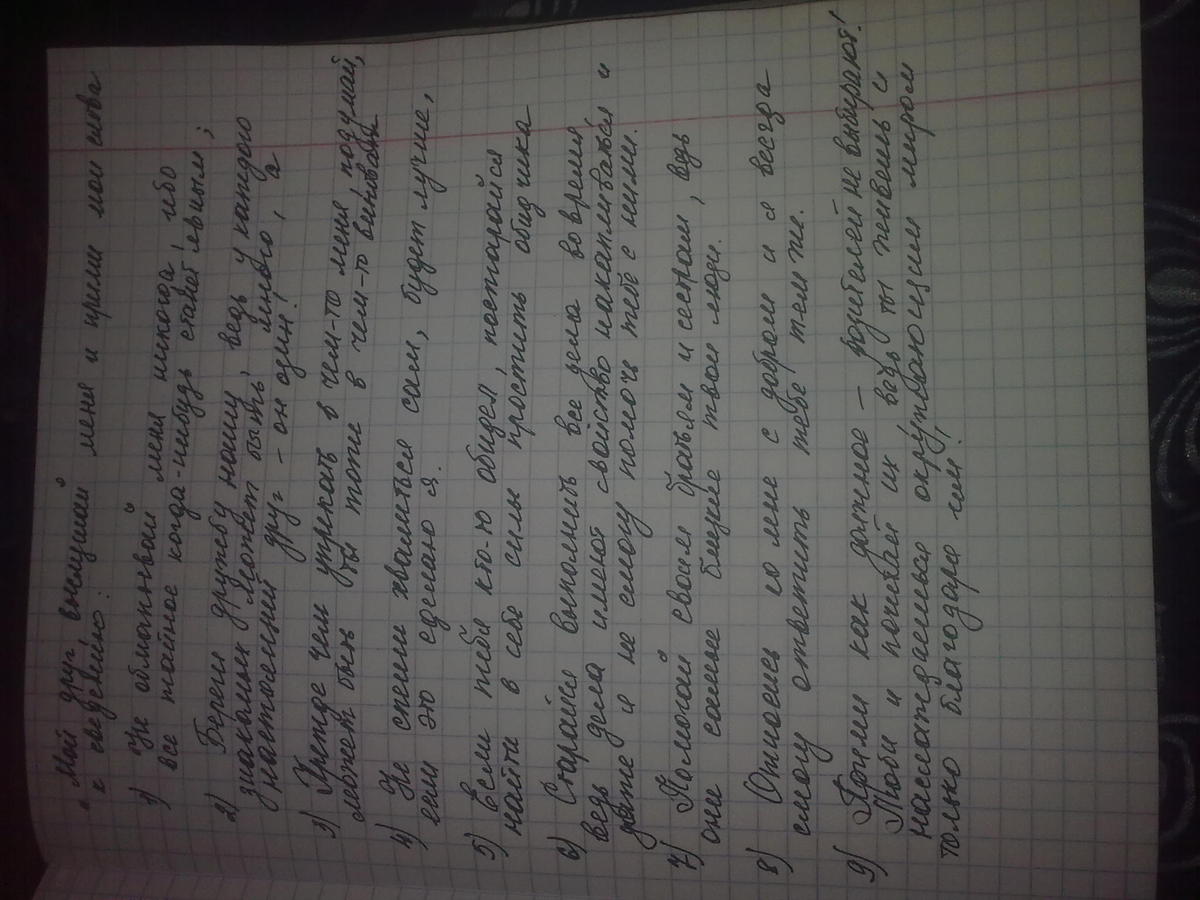 "Мой друг выслушай меня и прими мои слова
к сведению:
1) Не обманывай меня никогда, ибо
все тайное когда-нибудь станет явным;
2) Береги дружбу нашу, ведь у каждого
знакомых может быть много, а
настоящий друг - он один!
3) Прежде чем упрекать в чем-то меня, подумай,
может быть ты тоже в чем-то виноват.
4) Не спеши хвалиться сам, будет лучше,
если это сделаю я.
5) Если тебя кто-то обидел, постарайся
найти в себе силы простить обидчика
6) Старайся выполнить все дела во время
ведь дела имеют свойство накапливаться и
даже я не смогу помочь тебе с ними.
7) Помогай своим братьям и сестрам, ведь
они самые близкие твои люди.
8) Относись ко мне с добром и я всегда
смогу ответить тебе тем же.
9) Прими как должное - родителей не выбирают!
Люби и почитай их ведь ты живешь и
наслаждаешься окружающим миром
только благодаря им!